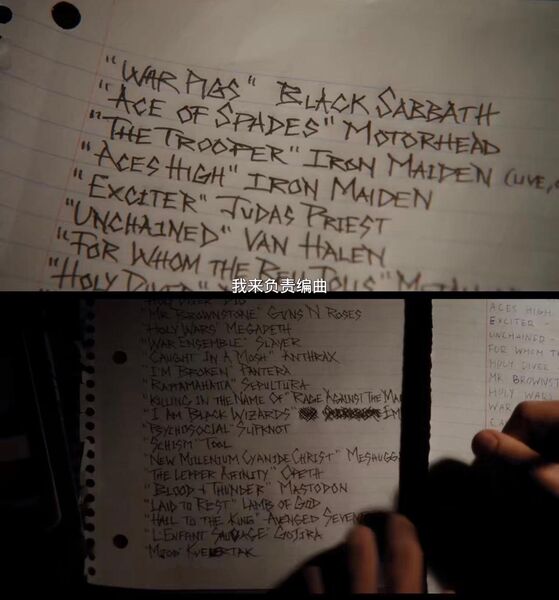 "WAR PIGS" BLACK SABBATH
"ACE OF SPADES" MOTORHEAD
"THE TROOPER" IRON MAIDEN (LIVE,
"ACES HIGH" IRON MAIDEN
"EXCITER" JUDAS PRIEST
"UNCHAINED" VAN HALEN
"FOR WHOM THE BELL TOLLS"
"HOLY DIVER"
我来负责编曲
"HOLY DIVER" DIO
"MR. BROWNSTONE" GUNS N ROSES
"HOLY WARS" MEGADETH
"WAR ENSEMBLE" SLAYER
"CAUGHT IN A MOSH" ANTHRAX
"I'M BROKEN" PANTERA
"RATAMAHATTA" SEPULTURA
"KILLING IN THE NAME OF" RAGE AGAINST THE MA
"I AM BLACK WIZARDS" EM
"PSYCHOSOCIAL" SLIPKNOT
"SCHISM" TOOL
"NEW MILLENIUM CYANIDE CHRIST" MESHUGG
"THE LEPPER AFFINITY" OPETH
"BLOOD + THUNDER" MASTODON
"LAID TO REST" LAMB OF GOD
"HAIL TO THE KING" AVENGED SEVENF
"L'ENFANT SAUVAGE" GOJIRA
KVELERTAK
ACES HIGH
EXCITER -
UNCHAINED -
FOR WHOM T
HOLY DIVER
MR BROWNST
HOLY WARS
WAR
CA